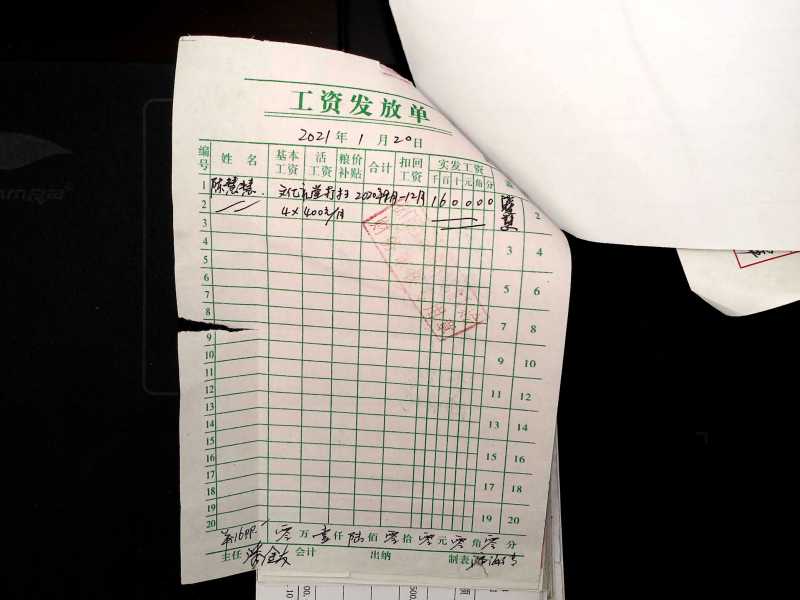 工资发放单
2021年1月20日
编号 姓名 基本工资 活工资 粮价补贴 合计 扣回工资 实发工资 千百十元角分
1 陈慧 文化礼堂打扫 2020年9月-12月 160000
2 4×400元/月 2
3 3 4
4
5 5 6
6
7 7 8
8
9 9 10
10
11 11 12
12
13 13 14
14
15 15 16
16
17 17 18
18
19 19 20
20
零万壹仟陆佰零拾零元零角零分
主任 会计 出纳 制表